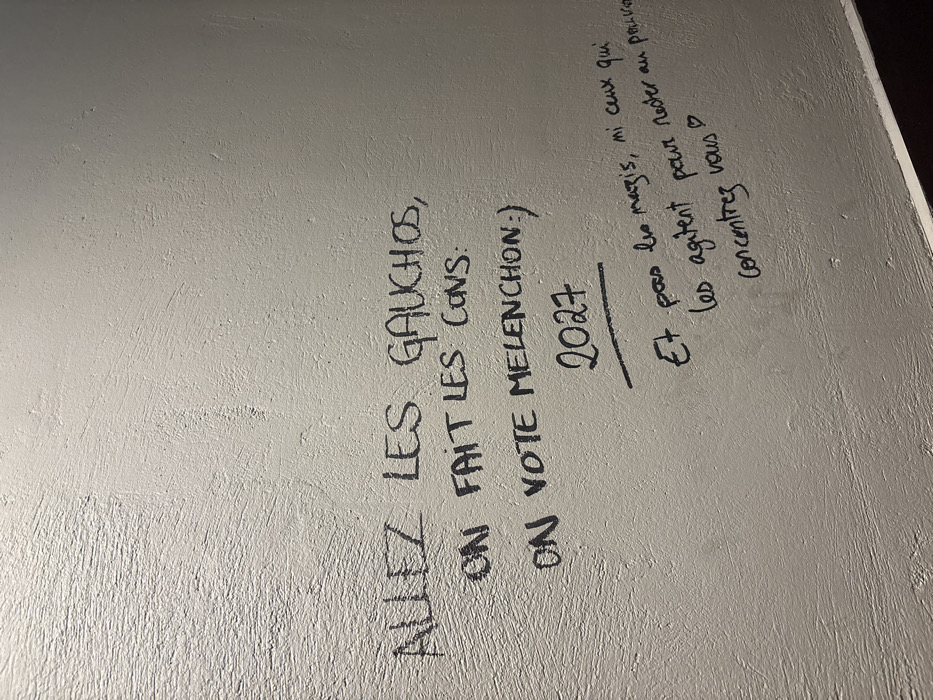 ALLEZ LES GAUCHOS,
ON FAIT LES CONS:
ON VOTE MELENCHON:)
2027
Et pas les nazis, ni ceux qui
les agitent pour rester au pouvoir
concentrez vous ♡